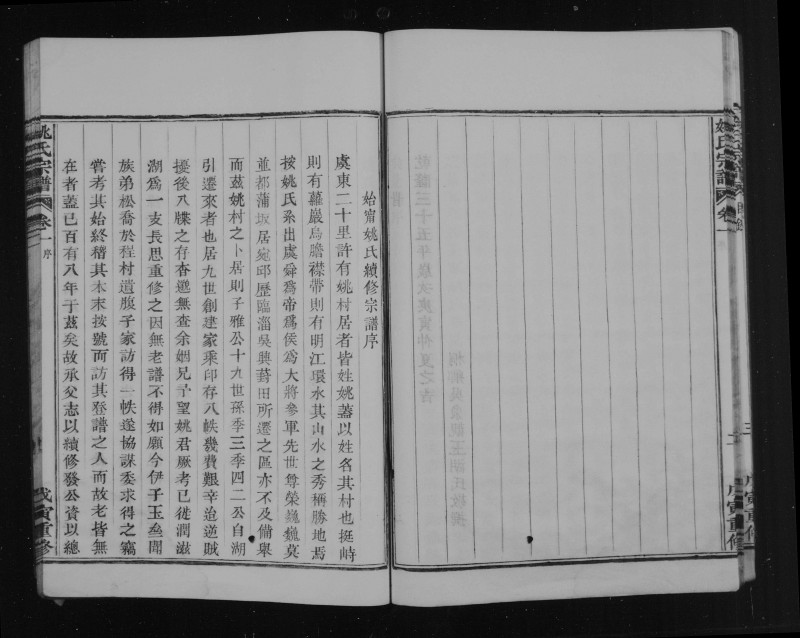 姚氏宗譜
卷一
三
戊寅重修
始甯姚氏續修宗譜序
虞東二十里許有姚村居者皆姓姚蓋以姓名其村也挺峙
則有蘿巖烏膽襟帶則有明江環水其山水之秀稱勝地焉
按姚氏系出虞舜爲帝爲侯爲大將參軍先世尊榮巍巍莫
並都蒲坂居宛邱歷臨淄吳興莆田所遷之區亦不及備舉
而茲姚村之卜居則子雅公十九世孫季三季四二公自湖
引遷來者也居九世創建家乘印存八帙幾費艱辛迨逆賊
擾後八牒之存杳邈無查余姻兄予望姚君厥考已徙潤滋
湖爲一支長思重修之因無老譜不得如願今伊子玉叁聞
族弟松喬於程村遺腹子家訪得一帙遂協謀委求得之竊
嘗考其始終稽其本末按號而訪其登譜之人而故老皆無
在者蓋已百有八年于茲矣故承父志以續修發公資以總
姚氏宗譜
卷一
序
戊寅重修